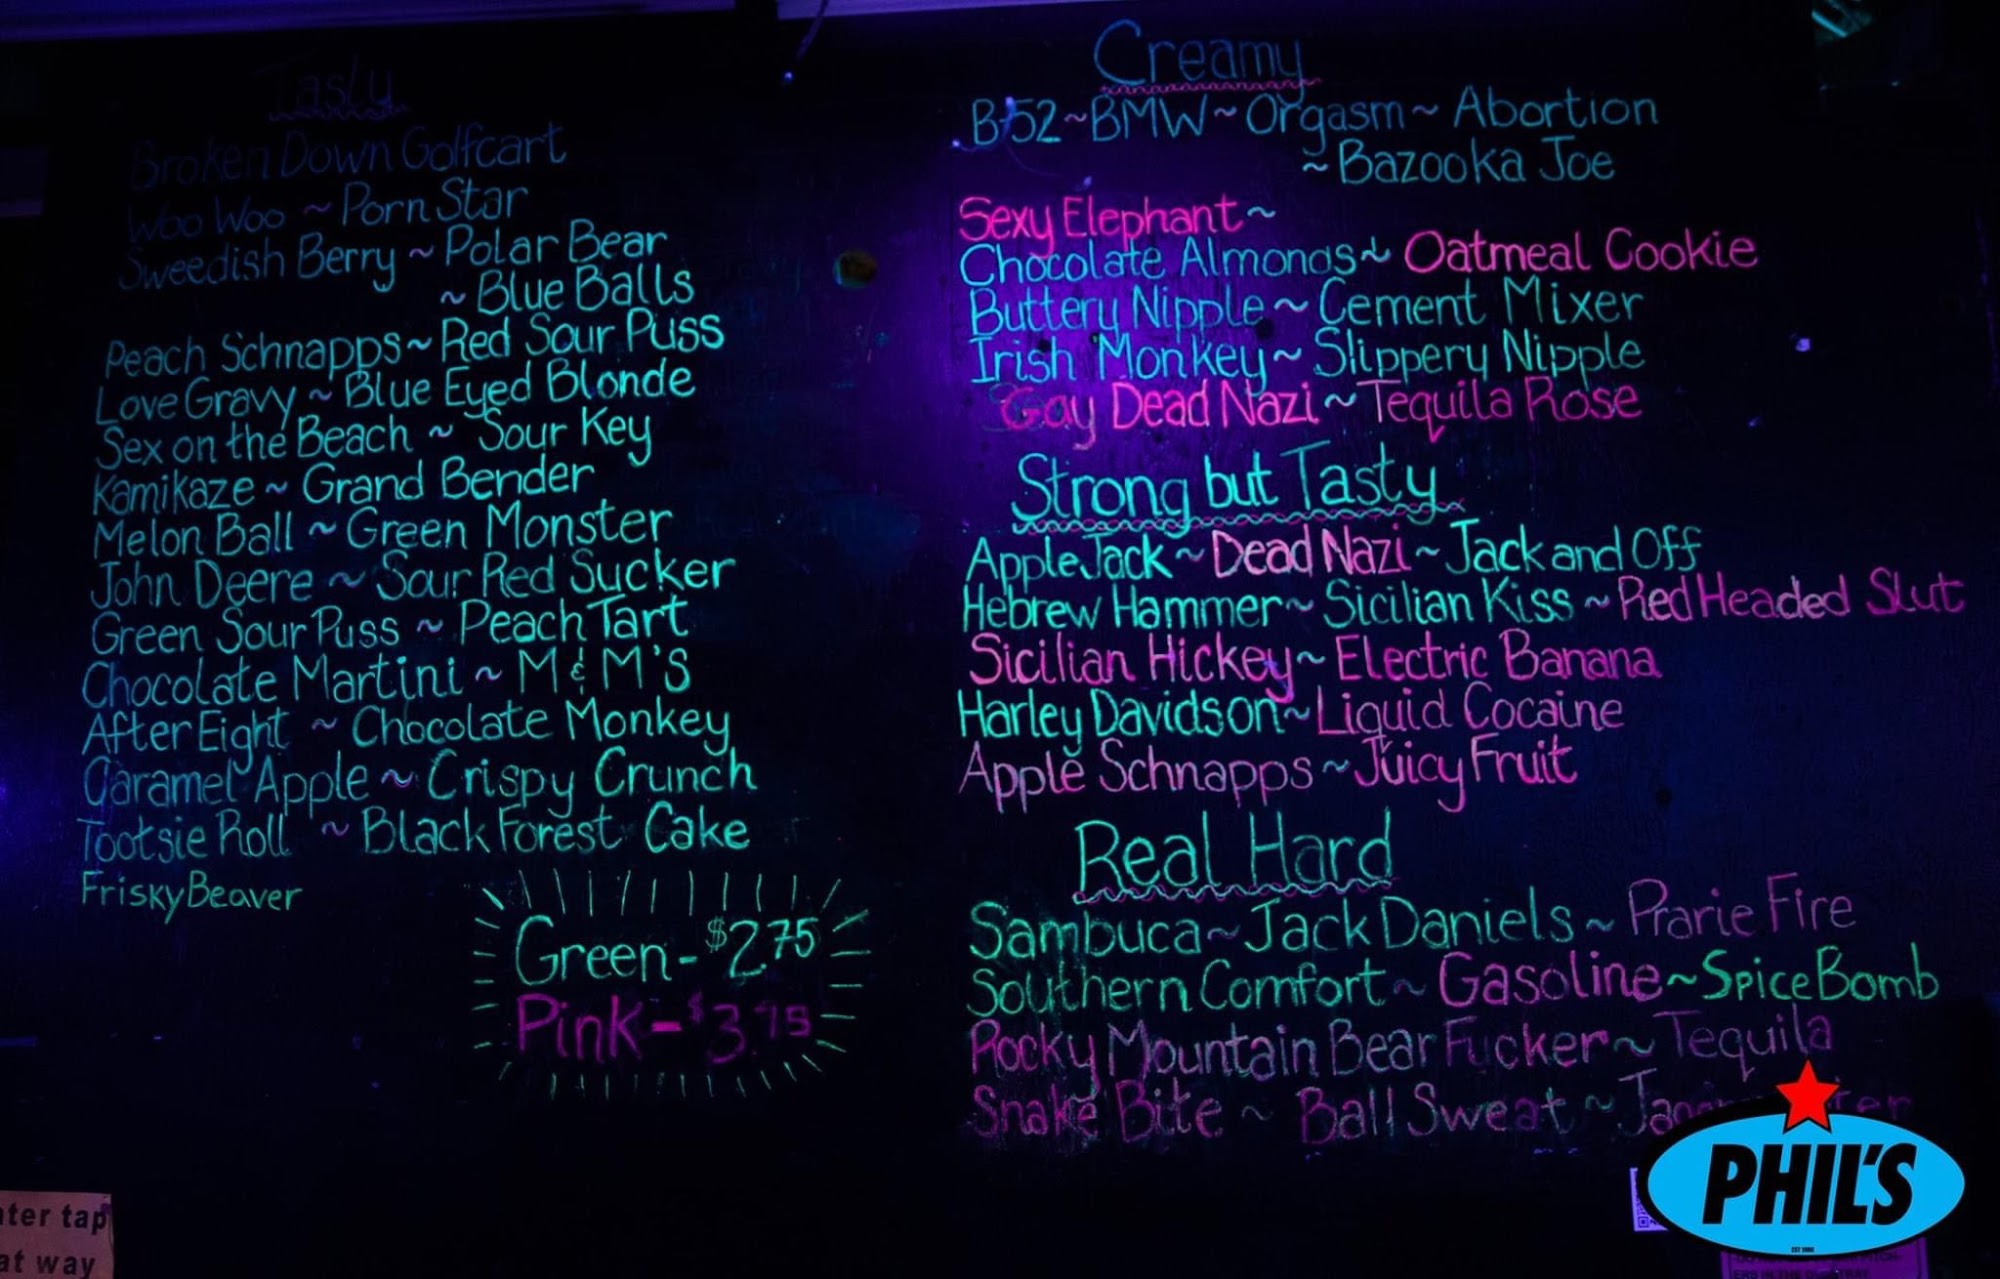 Tasty
Broken Down Golfcart
Woo Woo ~ Porn Star
Sweedish Berry ~ Polar Bear
~ Blue Balls
Peach Schnapps ~ Red Sour Puss
Love Gravy ~ Blue Eyed Blonde
Sex on the Beach ~ Sour Key
Kamikaze ~ Grand Bender
Melon Ball ~ Green Monster
John Deere ~ Sour Red Sucker
Green Sour Puss ~ Peach Tart
Chocolate Martini ~ M & M'S
After Eight ~ Chocolate Monkey
Caramel Apple ~ Crispy Crunch
Tootsie Roll ~ Black Forest Cake
Frisky Beaver
Green - $2.75
Pink - $3.75
Creamy
B-52 ~ BMW ~ Orgasm ~ Abortion
~ Bazooka Joe
Sexy Elephant ~
Chocolate Almonds ~ Oatmeal Cookie
Buttery Nipple ~ Cement Mixer
Irish Monkey ~ Slippery Nipple
Gay Dead Nazi ~ Tequila Rose
Strong but Tasty
Apple Jack ~ Dead Nazi ~ Jack and Off
Hebrew Hammer ~ Sicilian Kiss ~ Red Headed Slut
Sicilian Hickey ~ Electric Banana
Harley Davidson ~ Liquid Cocaine
Apple Schnapps ~ Juicy Fruit
Real Hard
Sambuca ~ Jack Daniels ~ Prarie Fire
Southern Comfort ~ Gasoline ~ Spice Bomb
Rocky Mountain Bear Fucker ~ Tequila
Snake Bite ~ Ball Sweat ~
PHIL'S
ter tap
at way